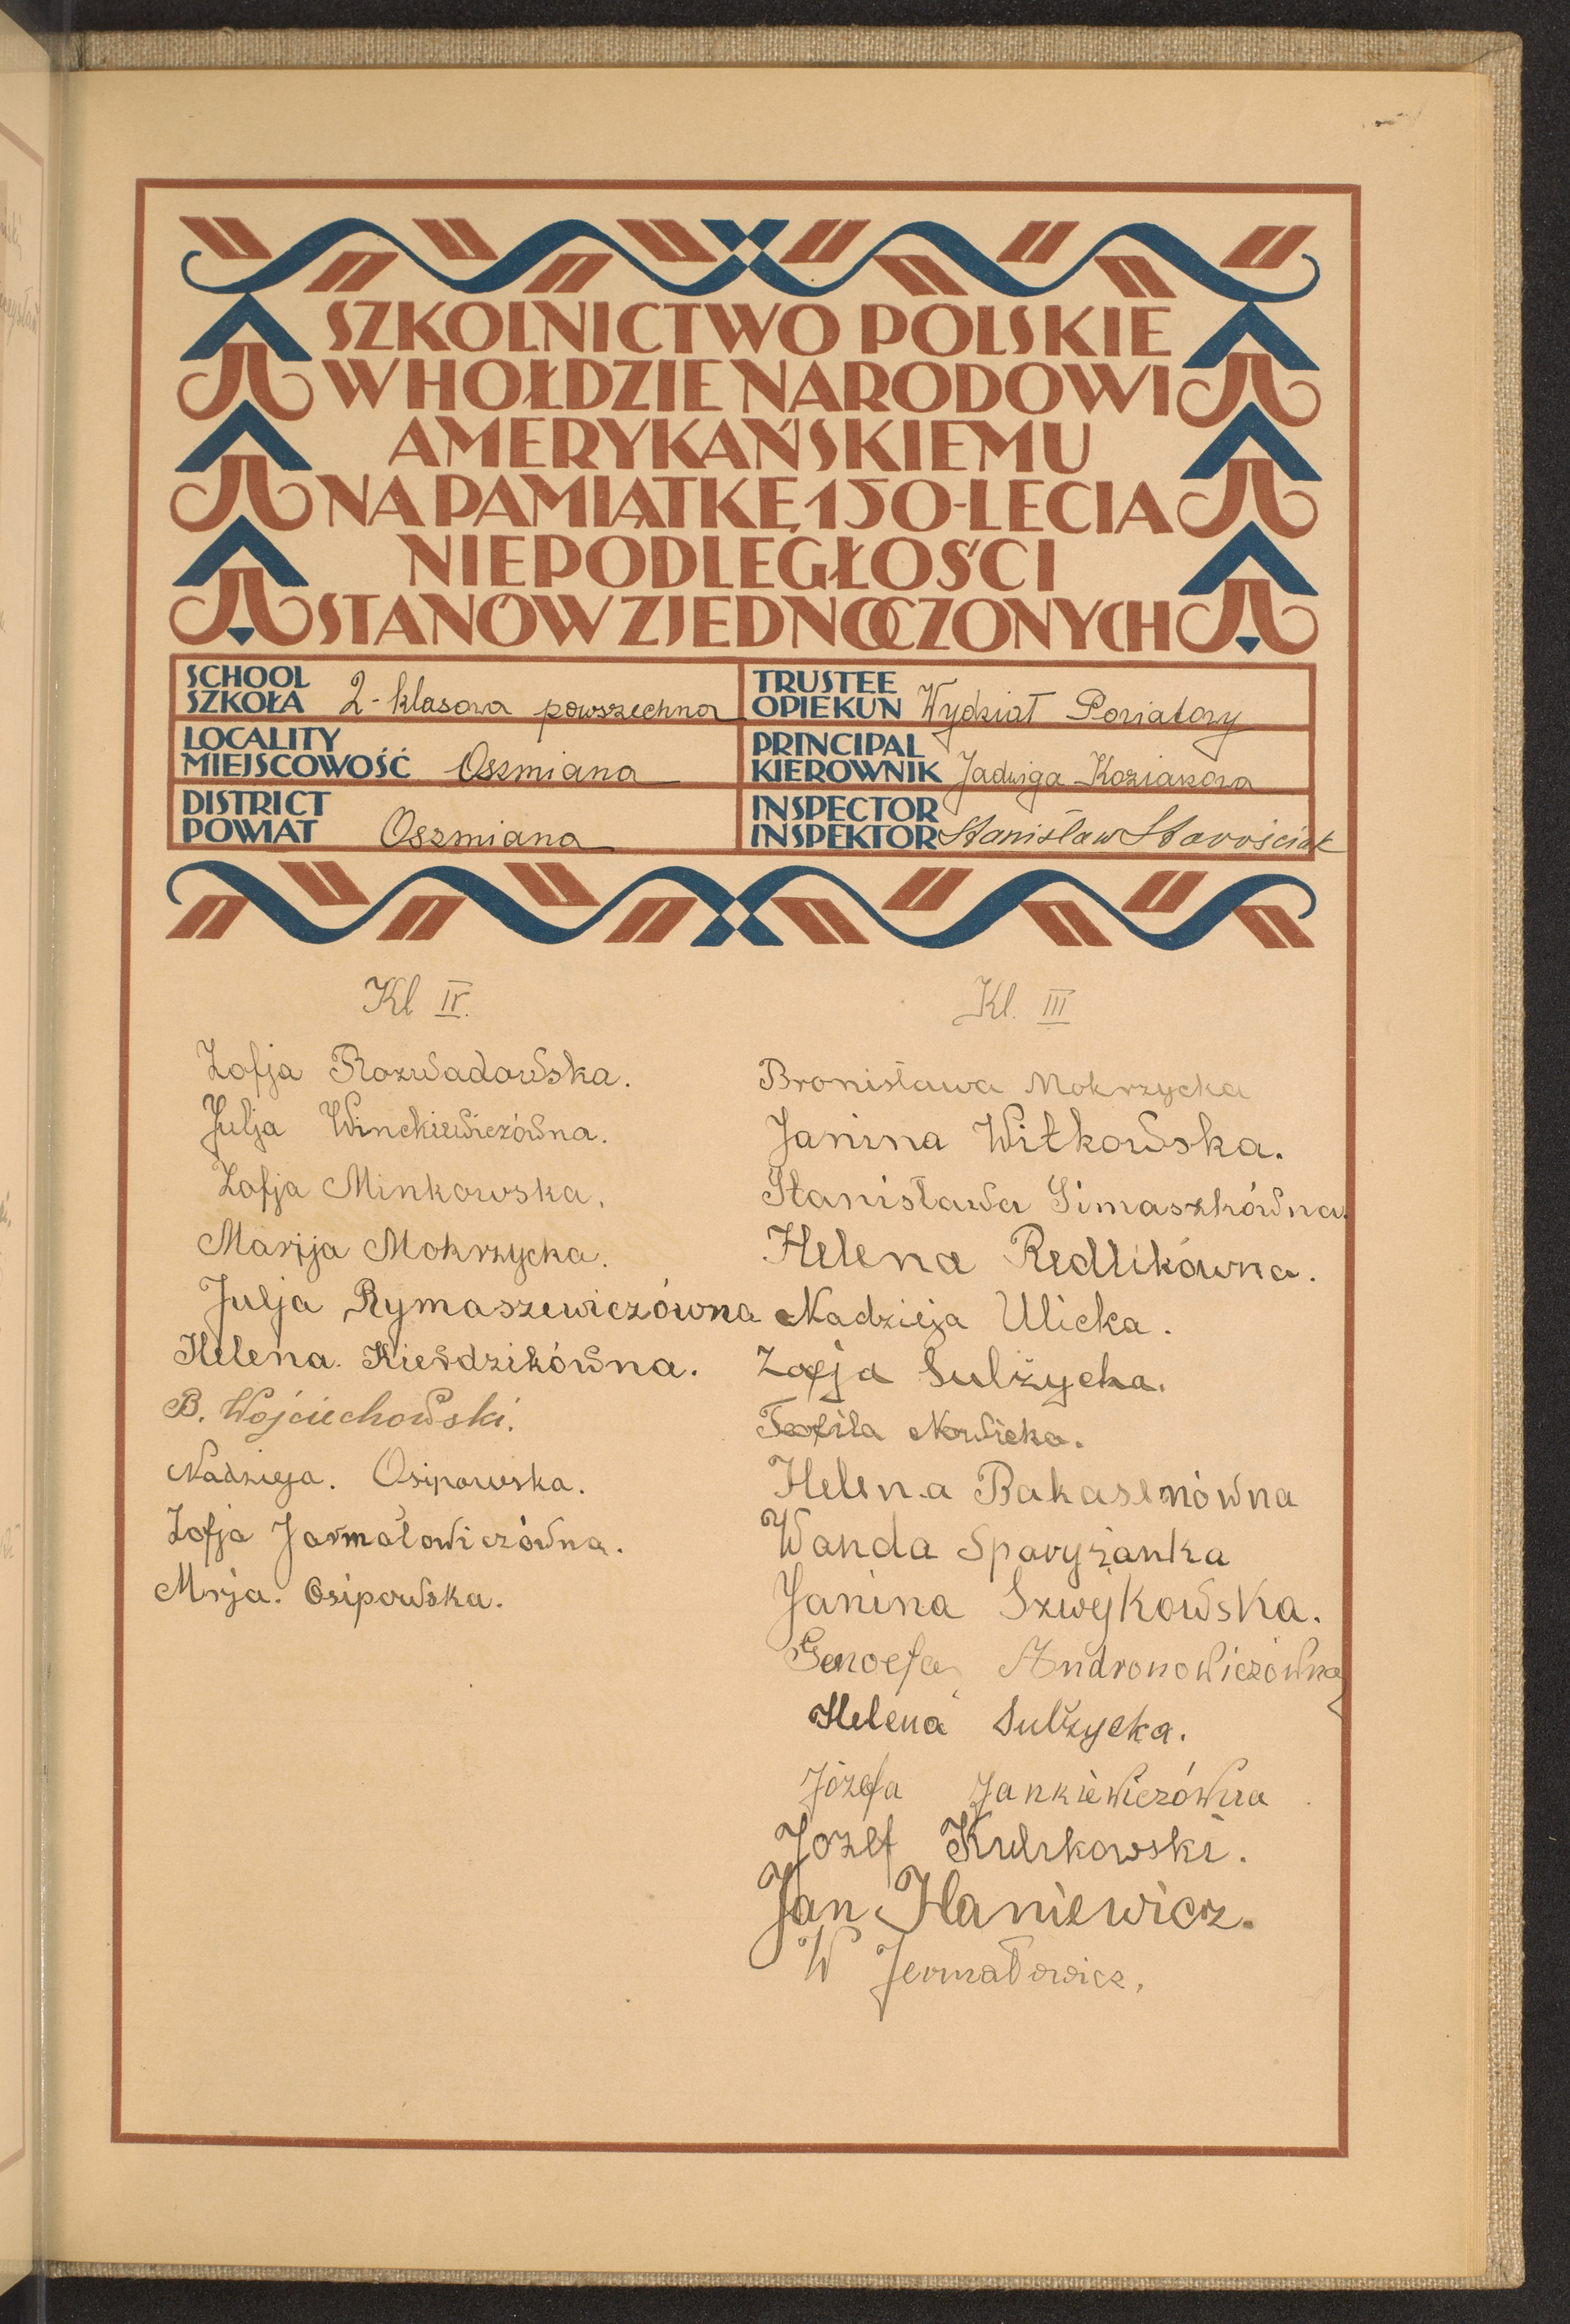 SZKOLNICTWO POLSKIE
W HOŁDZIE NARODOWI
AMERYKAŃSKIEMU
NA PAMIĄTKĘ 150-LECIA
NIEPODLEGŁOŚCI
STANÓW ZJEDNOCZONYCH
SCHOOL
SZKOŁA 2-klasowa powszechna
TRUSTEE
OPIEKUN Wydział Powiatowy
LOCALITY
MIEJSCOWOŚĆ Oszmiana
PRINCIPAL
KIEROWNIK Jadwiga Koziakowa
DISTRICT
POWIAT Oszmiana
INSPECTOR
INSPEKTOR Stanisław Starościak
Kl IV.
Zofja Rozwadowska.
Julja Winckiewiczówna.
Zofja Minkowska.
Marija Mokrzycka.
Julja Rymaszewiczówna
Helena. Kierdzikówna.
B. Wojciechowski.
Nadzieja. Osipowska.
Zofja Jarmałowiczówna.
Mrja. Osipowska.
Kl. III
Bronisława Mokrzycka
Janina Witkowska.
Stanisława Simaszkówna.
Helena Redlikówna.
Nadzieja Ulicka.
Zofja Sulżycka.
Teofila Nowicka.
Helena Bakasenówna
Wanda Sparyżanka
Janina Szwejkowska.
Genoefa Andronowiczówna
Helena Sulżycka.
Józefa Jankiewiczówna
Józef Kulikowski.
Jan Haniewicz.
W Jermałowicz.